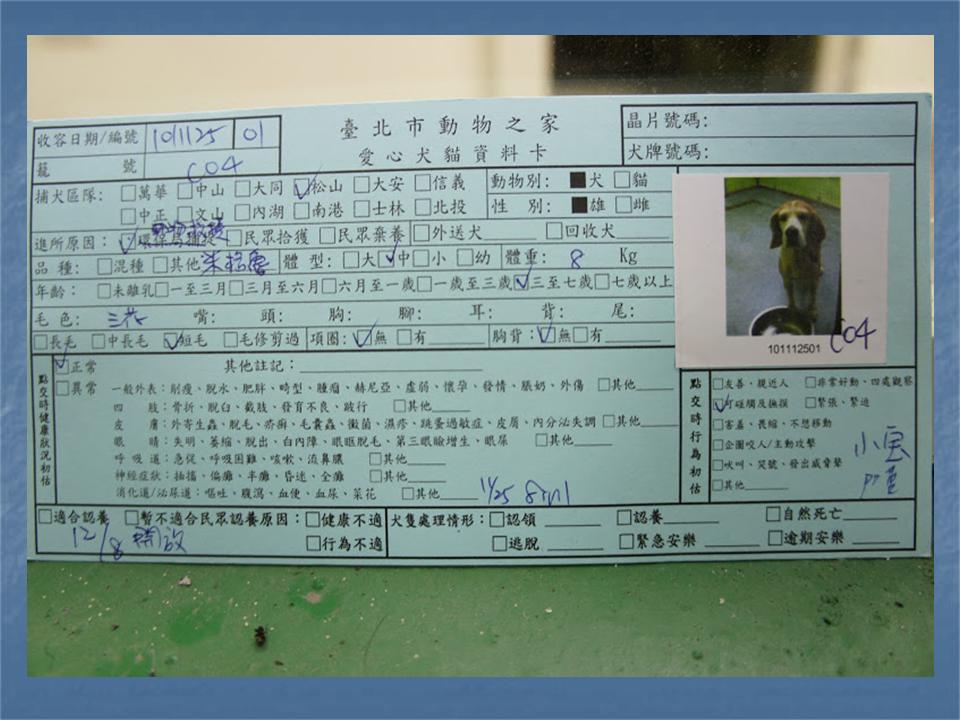 臺北市動物之家
愛心犬貓資料卡
收容日期/編號 1011125 01
籠 號 C04
晶片號碼:
犬牌號碼:
捕犬區隊: □萬華 □中山 □大同 ☑松山 □大安 □信義
□中正 □文山 □內湖 □南港 □士林 □北投
動物別: ■犬 □貓
性 別: ■雄 □雌
進所原因: ☑ □民眾拾獲 □民眾棄養 □外送犬 □回收犬
品 種: □混種 □其他 米格魯 體 型: □大 ☑中 □小 □幼 體重: 8 Kg
年齡: □未離乳 □一至三月 □三月至六月 □六月至一歲 □一歲至三歲 ☑三至七歲 □七歲以上
毛 色: 三花 嘴: 頭: 胸: 腳: 耳: 背: 尾:
□長毛 □中長毛 ☑短毛 □毛修剪過 項圈: ☑無 □有 胸背: ☑無 □有
101112501
C04
點交時健康狀況初估
☑正常 其他註記:
□異常 一般外表: 削瘦、脫水、肥胖、畸型、腫瘤、赫尼亞、虛弱、懷孕、發情、脹奶、外傷 □其他
四 肢: 骨折、脫臼、截肢、發育不良、跛行 □其他
皮 膚: 外寄生蟲、脫毛、疥癬、毛囊蟲、黴菌、濕疹、跳蚤過敏症、皮屑、內分泌失調 □其他
眼 睛: 失明、萎縮、脫出、白內障、眼眶脫毛、第三眼瞼增生、眼屎 □其他
呼吸道: 急促、呼吸困難、咳嗽、流鼻膿 □其他
神經症狀: 抽搐、偏癱、半癱、昏迷、全癱 □其他
消化道/泌尿道: 嘔吐、腹瀉、血便、血尿、菜花 □其他 11/25
點交時行為初估
□友善、親近人 □非常好動、四處觀察
☑可碰觸及撫摸 □緊張、緊迫
□害羞、畏縮、不想移動
□企圖咬人/主動攻擊
□吠叫、哭號、發出威脅聲
□其他
□適合認養 □暫不適合民眾認養原因: □健康不適
□行為不適
12/8 開放
犬隻處理情形: □認領 □認養 □自然死亡
□逃脫 □緊急安樂 □逾期安樂